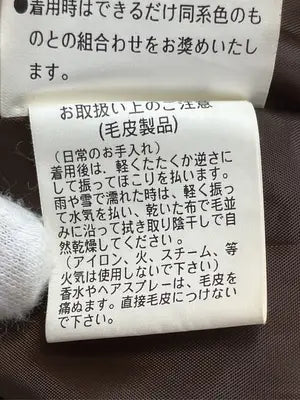 ●着用時はできるだけ同系色のも
のとの組合わせをお奨めいたし
ます。
お取扱い上のご注意
(毛皮製品)
（日常のお手入れ）
着用後は、軽くたたくか逆さに
して振ってほこりを払います。
雨や雪で濡れた時は、軽く振っ
て水気を払い、乾いた布で毛並
みに沿って拭き取り陰干しで自
然乾燥してください。
（アイロン、火、スチーム、等
火気は使用しないで下さい）
香水やヘアスプレーは、毛皮を
痛めます。直接毛皮につけない
で下さい。